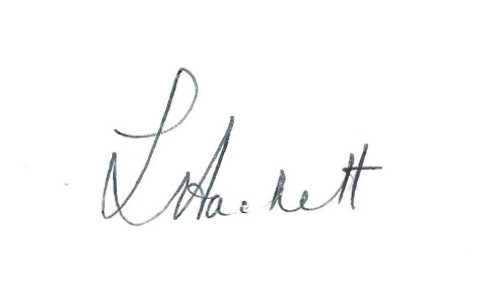 L Hackett